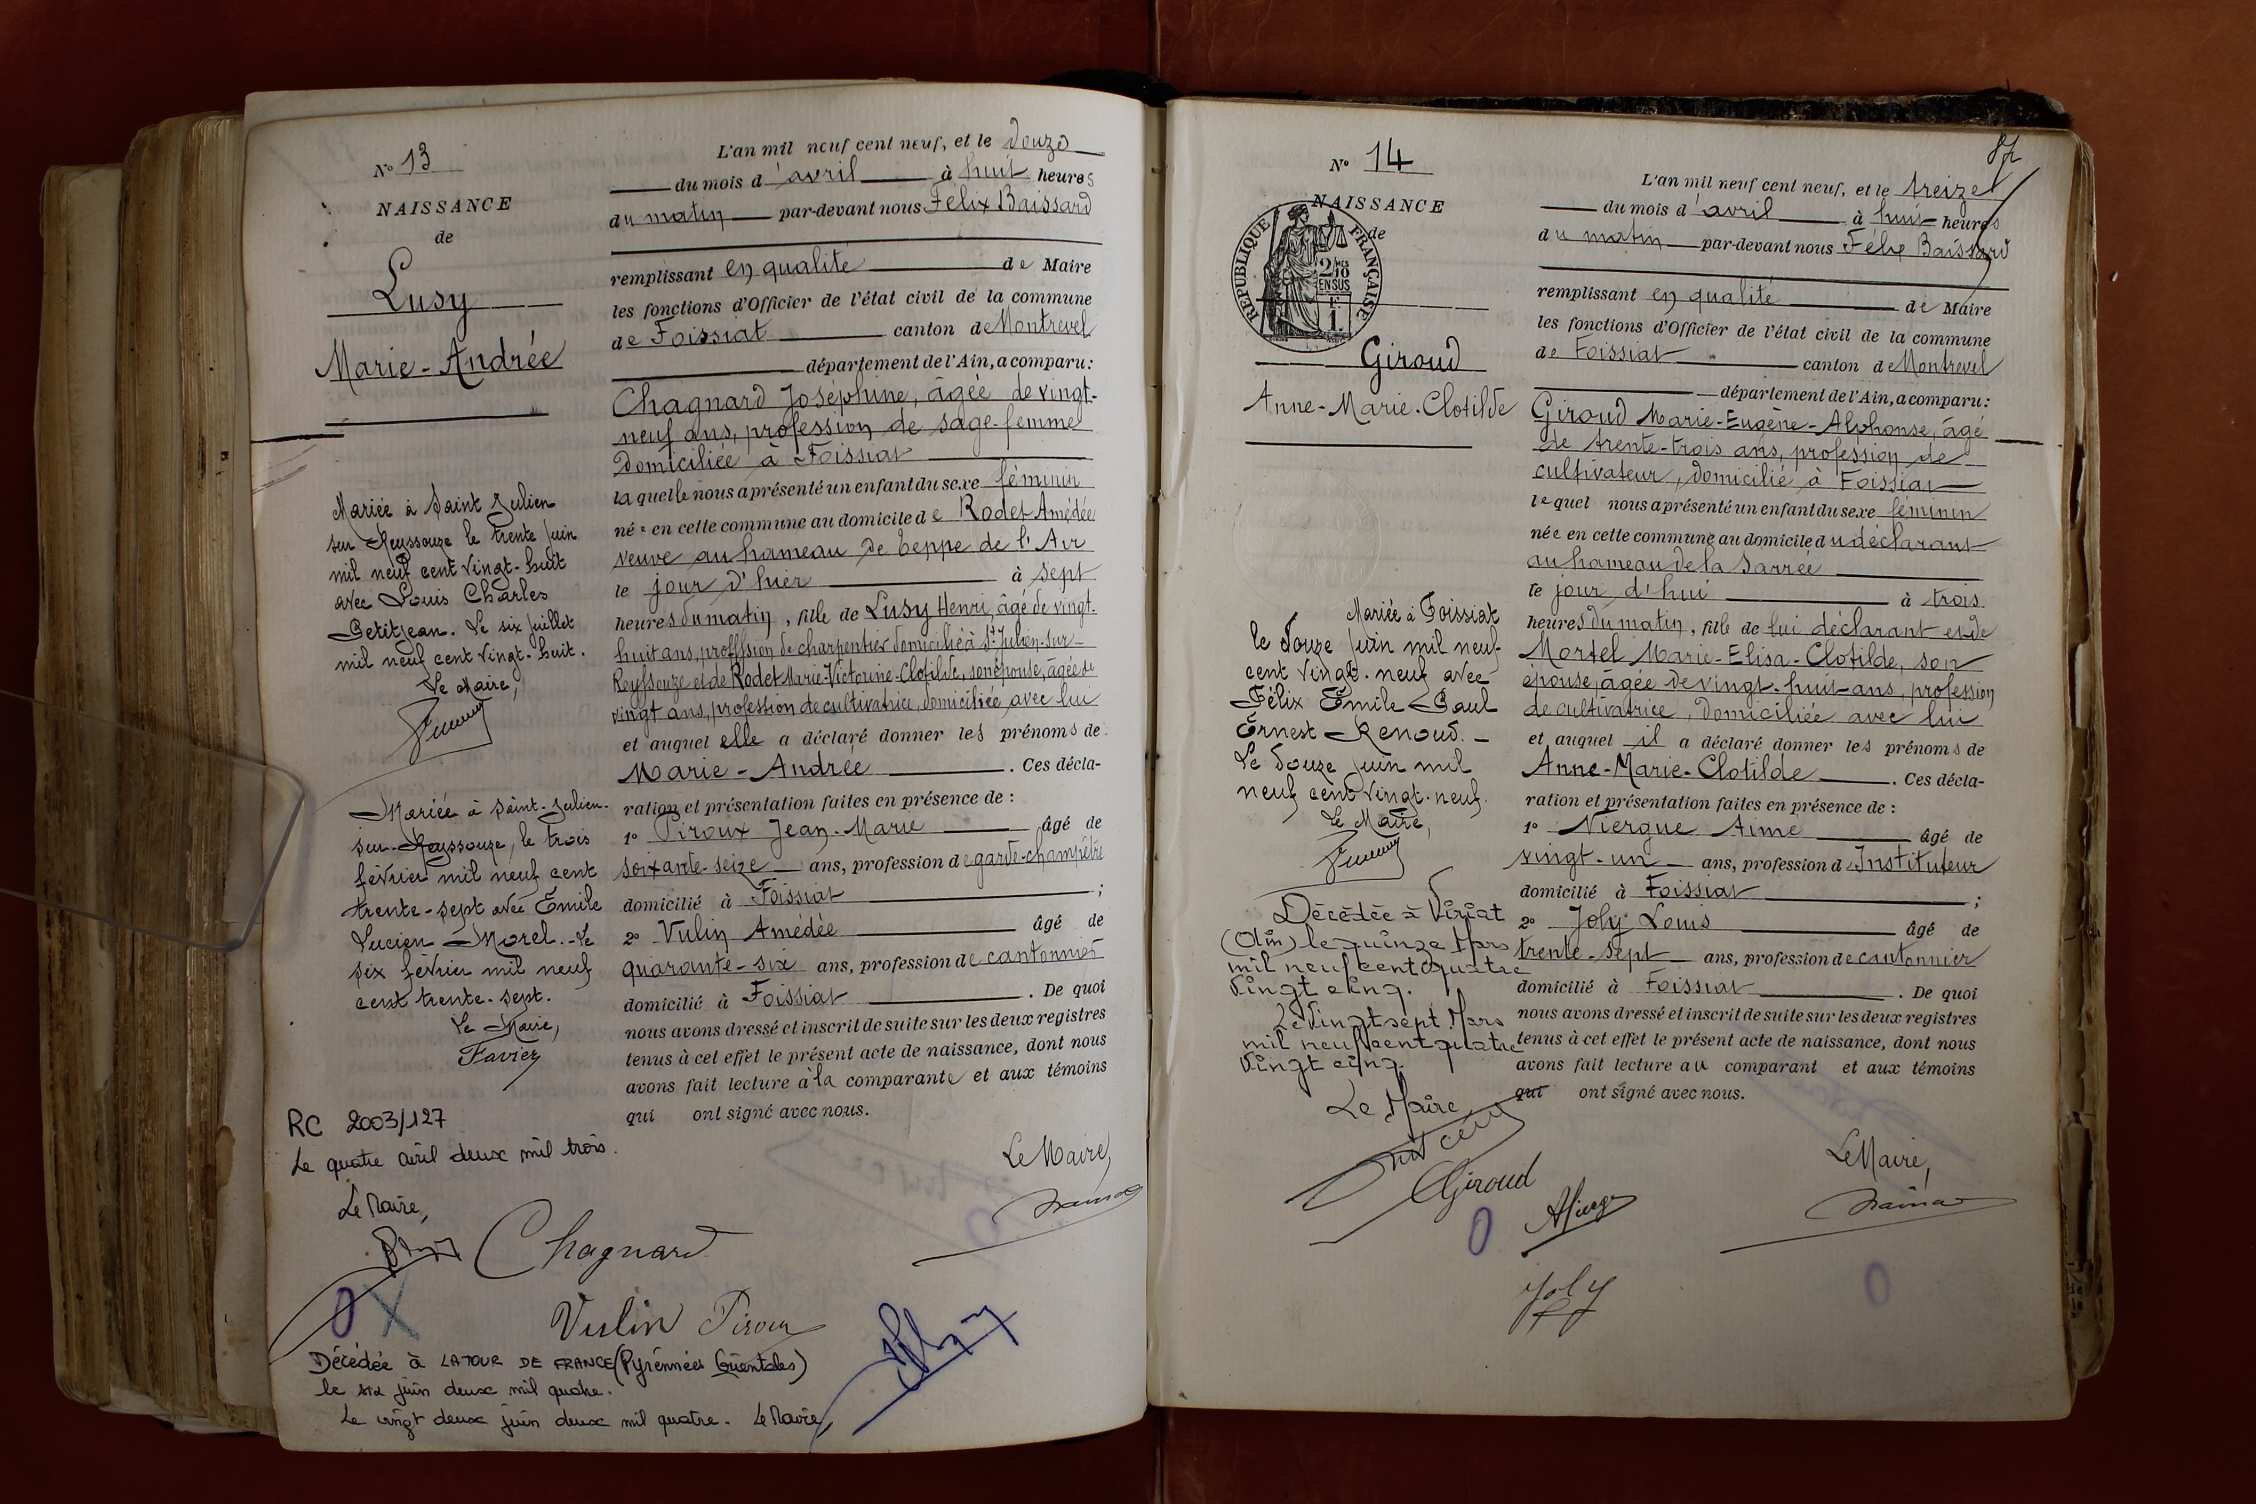 N° 13
NAISSANCE
de
Lusy
Marie-Andrée
Mariée à Saint Julien
sur Reyssouze le trente juin
mil neuf cent vingt-huit
avec Louis Charles
Petitjean. Le six juillet
mil neuf cent vingt-huit.
Le Maire,
Mariée à Saint-Julien-
sur-Reyssouze, le trois
février mil neuf cent
trente-sept avec Emile
Lucien Morel. - Le
six février mil neuf
cent trente-sept.
Le Maire,
Favier
RC 2003/127
Le quatre avril deux mil trois.
Le Maire,
L'an mil neuf cent neuf, et le douze
du mois d'avril à huit heures
du matin par-devant nous Félix Baissard
remplissant en qualité de Maire
les fonctions d'Officier de l'état civil de la commune
de Foissiat canton de Montrevel
département de l'Ain, a comparu:
Chagnard Joséphine, âgée de vingt-
neuf ans, profession de sage-femme
domiciliée à Foissiat
laquelle nous a présenté un enfant du sexe féminin
née en cette commune au domicile de Rodet Amédée
veuve au hameau de Teppe de l'Air
le jour d'hier à sept
heures du matin, fille de Lusy Henri, âgé de vingt-
huit ans, profession de charpentier domicilié à St Julien-sur-
Reyssouze et de Rodet Marie-Victorine-Clotilde, son épouse, âgée de
vingt ans, profession de cultivatrice, domiciliée avec lui
et auquel elle a déclaré donner les prénoms de
Marie-Andrée. Ces décla-
ration et présentation faites en présence de :
1° Piroux Jean-Marie âgé de
soixante-seize ans, profession de garde-champêtre
domicilié à Foissiat ;
2° Vulin Amédée âgé de
quarante-six ans, profession de cantonnier
domicilié à Foissiat. De quoi
nous avons dressé et inscrit de suite sur les deux registres
tenus à cet effet le présent acte de naissance, dont nous
avons fait lecture à la comparante et aux témoins
qui ont signé avec nous.
Le Maire,
Chagnard
Vulin Piroux
Décédée à LATOUR DE FRANCE (Pyrénnées Orientales)
le six juin deux mil quatre.
Le vingt deux juin deux mil quatre. Le Maire,
N° 14
NAISSANCE
de
REPUBLIQUE FRANÇAISE
2/10 EN SUS
1 F.
Giroud
Anne-Marie-Clotilde
Mariée à Foissiat
le douze juin mil neuf
cent vingt-neuf avec
Félix Emile Paul
Ernest Renoud. -
Le douze juin mil
neuf cent vingt-neuf.
Le Maire,
Décédée à Viriat
(Ain) le quinze Mars
mil neuf cent quatre
vingt cinq.
Le vingt sept Mars
mil neuf cent quatre
vingt cinq.
Le Maire
L'an mil neuf cent neuf, et le treize
du mois d'avril à huit heures
du matin par-devant nous Félix Baissard
remplissant en qualité de Maire
les fonctions d'Officier de l'état civil de la commune
de Foissiat canton de Montrevel
département de l'Ain, a comparu:
Giroud Marie-Eugène-Alphonse, âgé
de trente-trois ans, profession de
cultivateur, domicilié à Foissiat
lequel nous a présenté un enfant du sexe féminin
née en cette commune au domicile du déclarant
au hameau de la Sarrée
le jour d'hui à trois
heures du matin, fille de lui déclarant et de
Mortel Marie-Elisa-Clotilde, son
épouse, âgée de vingt-huit ans, profession
de cultivatrice, domiciliée avec lui
et auquel il a déclaré donner les prénoms de
Anne-Marie-Clotilde. Ces décla-
ration et présentation faites en présence de :
1° Niergue Aimé âgé de
vingt-un ans, profession d'Instituteur
domicilié à Foissiat ;
2° Joly Louis âgé de
trente-sept ans, profession de cantonnier
domicilié à Foissiat. De quoi
nous avons dressé et inscrit de suite sur les deux registres
tenus à cet effet le présent acte de naissance, dont nous
avons fait lecture au comparant et aux témoins
qui ont signé avec nous.
Le Maire,
Giroud
Joly